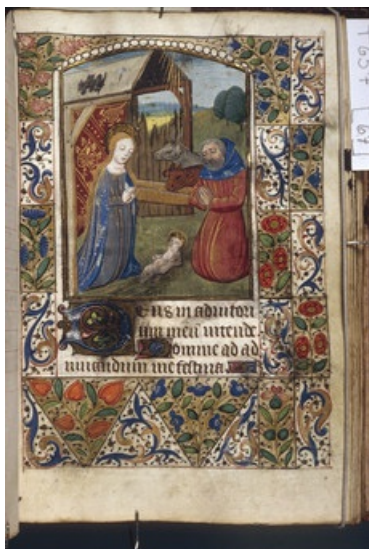 Deus in adiutori
um meũ intende
Domine ad ad
iuuandum me festina